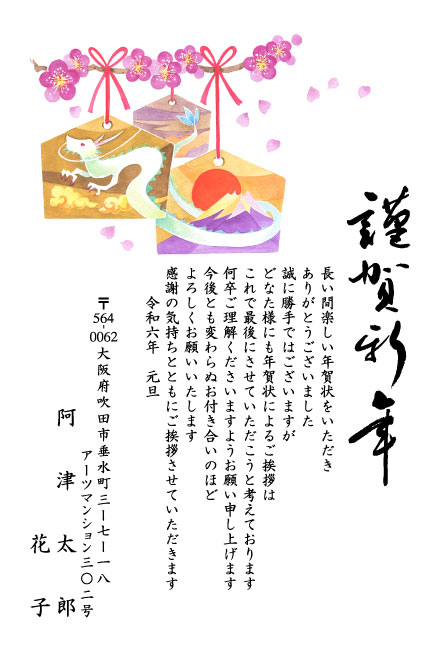 謹賀新年
長い間楽しい年賀状をいただき
ありがとうございました
誠に勝手ではございますが
どなた様にも年賀状によるご挨拶は
これで最後にさせていただこうと考えております
何卒ご理解くださいますようお願い申し上げます
今後とも変わらぬお付き合いのほど
よろしくお願いいたします
感謝の気持ちとともにご挨拶させていただきます
令和六年 元旦
〒564-0062 大阪府吹田市垂水町三ー七ー一八
アーツマンション三〇二号
阿津太郎
花子